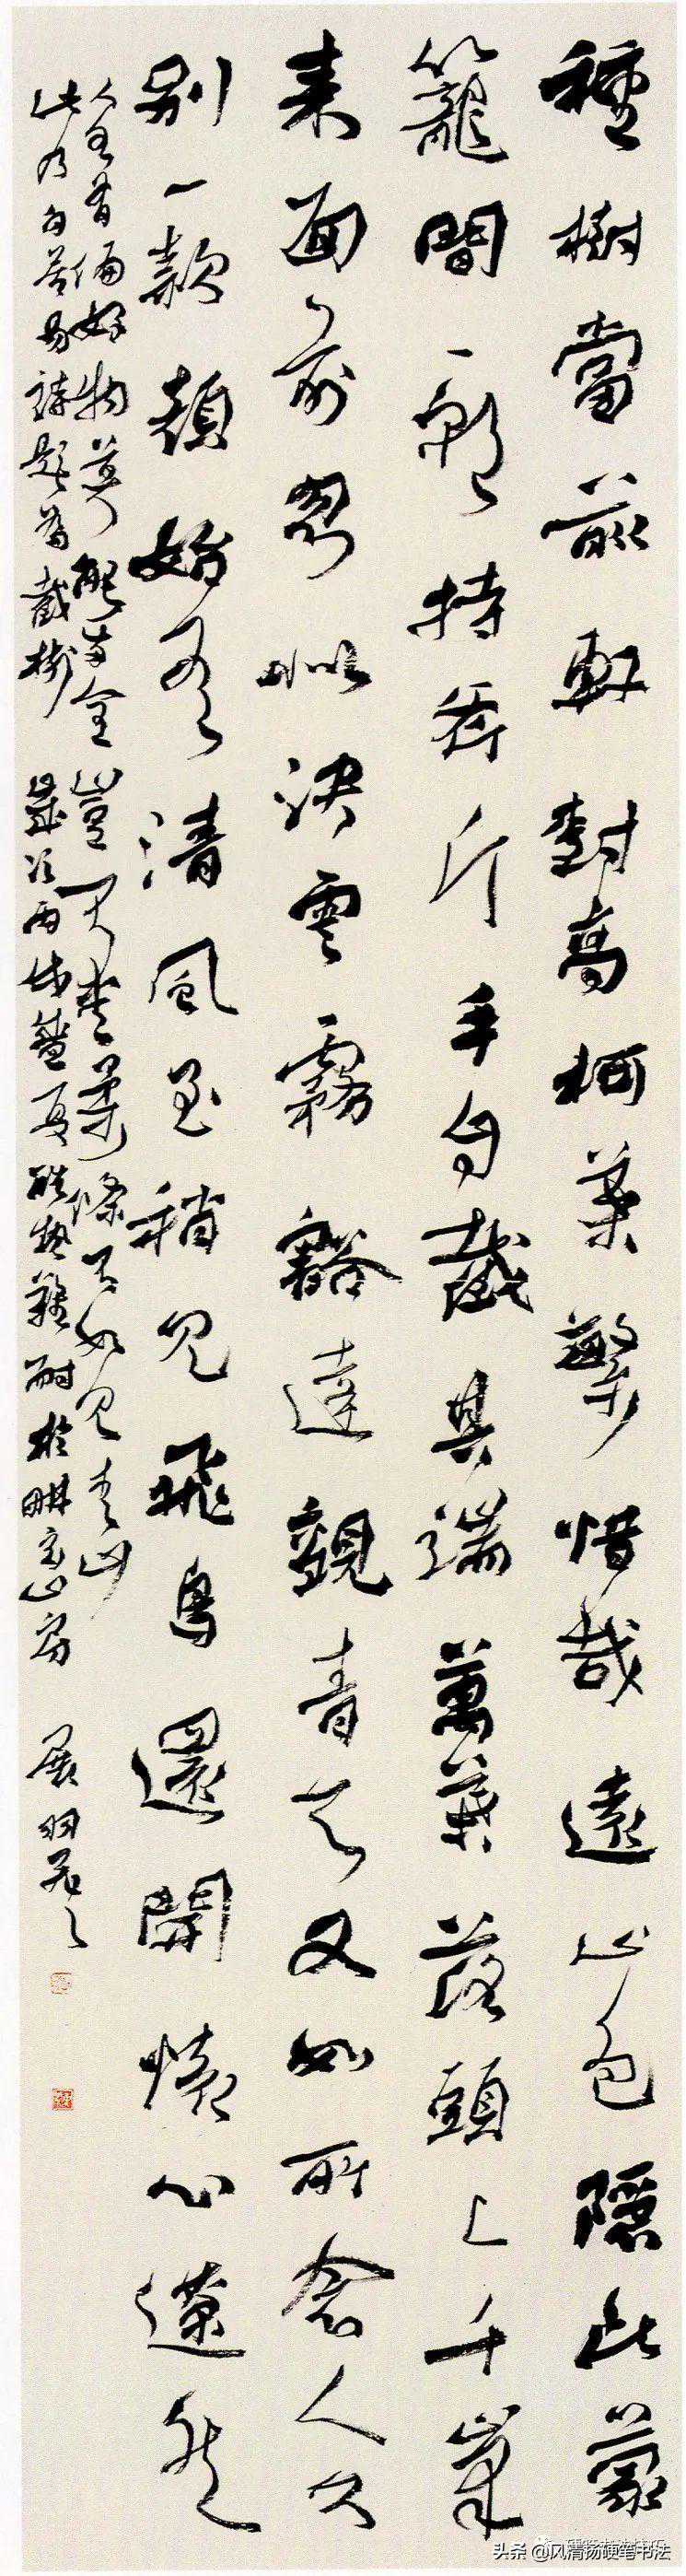 種樹當前軒樹高柯葉繁惜哉遠山色隱此蒙
籠間一朝持斧斤手自截其端萬葉落頭上千峯
來面前忽似決雲霧豁達覩青天又如所念人久
別一款顏始有清風至稍見飛鳥還開懷心遼然
人各有偏好物莫能兩全豈不愛柔條不如見青山
此乃白居易詩題為截樹 歲次丙戌盛夏酷熱難耐於畊山房
头条 @风清扬硬笔书法